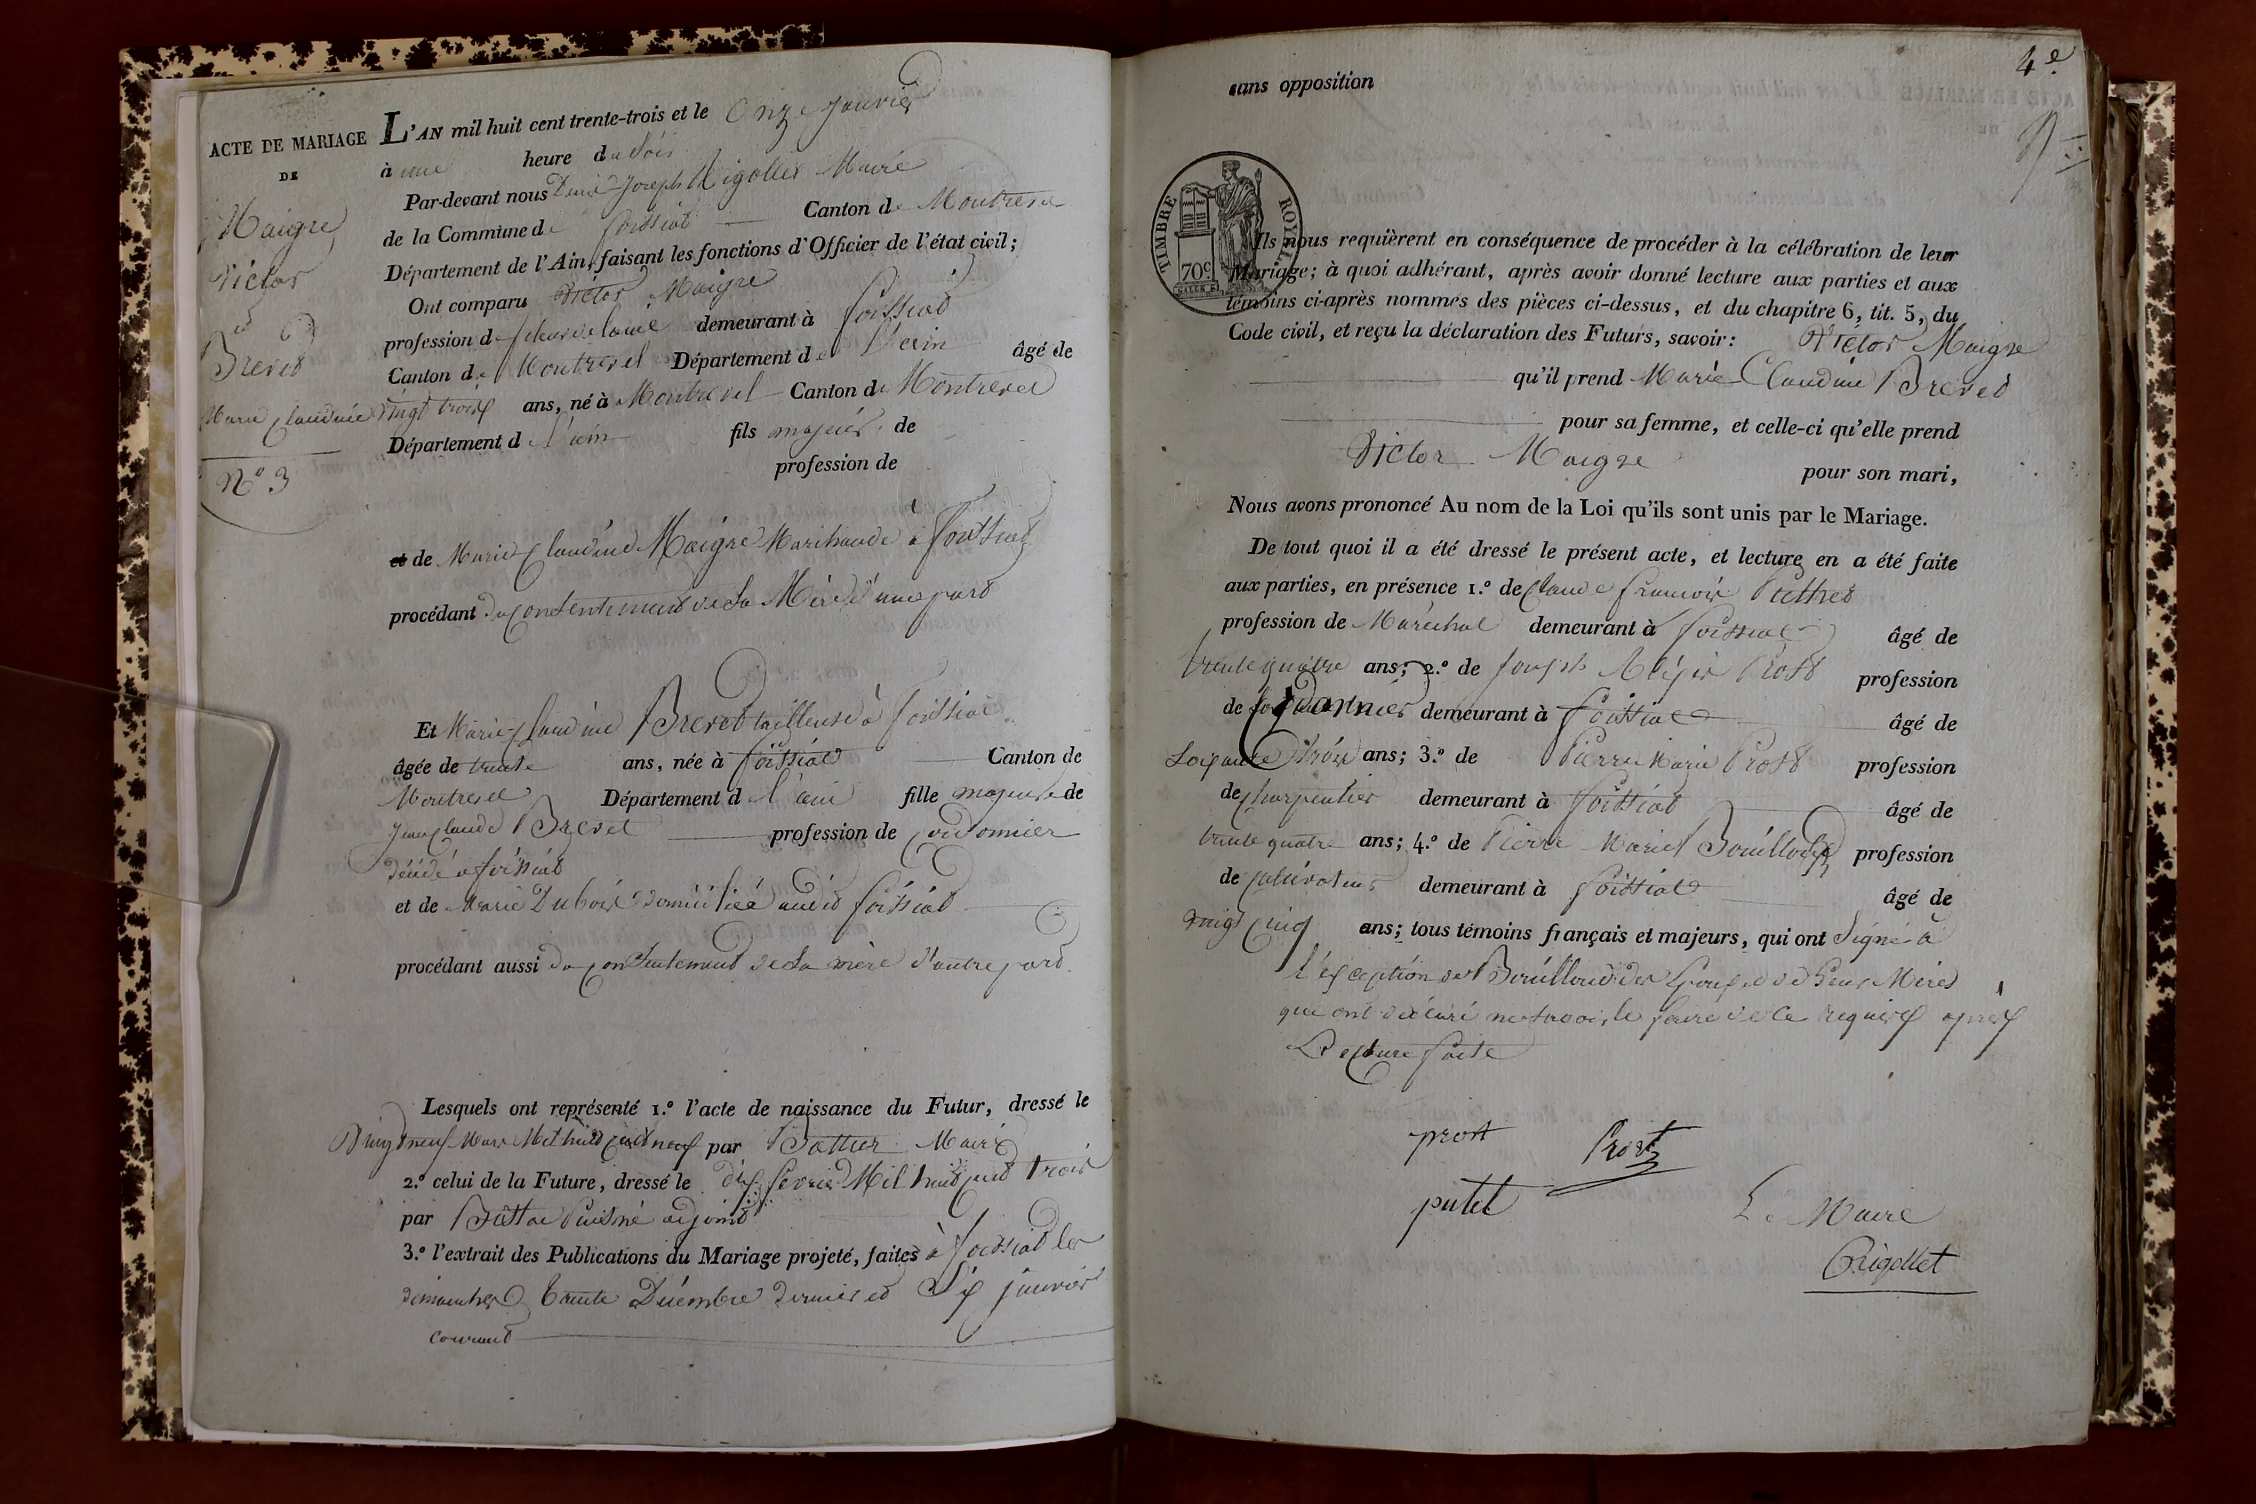 ACTE DE MARIAGE
DE
Maigre
Victor
et
Brevet
Marie Claudine
N.º 3
L'AN mil huit cent trente-trois et le Onze Janvier
à une heure du Soir
Par-devant nous Denis Joseph Rigollet Maire
de la Commune de foissiat Canton de Montrevel
Département de l'Ain, faisant les fonctions d'Officier de l'état civil;
Ont comparu Victor Maigre
profession de fileur de laine demeurant à foissiat
Canton de Montrevel Département de l'ain âgé de
vingt trois ans, né à Montrevel Canton de Montrevel
Département d l'ain fils majeur de
profession de
et de Marie Claudine Maigre Marchande à foissiat
procédant du Consentement de sa Mère d'une part
Et Marie Claudine Brevet tailleuse à foissiat
âgée de trente ans, née à foissiat Canton de
Montrevel Département d l'ain fille majeure de
Jean Claude Brevet profession de Cordonnier
décédé à foissiat
et de Marie Dubois domiciliée audit foissiat
procédant aussi du Consentement de sa mère d'autre part.
Lesquels ont représenté 1.º l'acte de naissance du Futur, dressé le
Vingt neuf Mars Mil huit cent neuf par Maire
2.º celui de la Future, dressé le dix fevrier Mil huit cent trois
par Puisné adjoint
3.º l'extrait des Publications du Mariage projeté, faites à foissiat les
dimanches trente Décembre dernier et Six janvier
courant
4e.
sans opposition
TIMBRE ROYAL
70c
Ils nous requièrent en conséquence de procéder à la célébration de leur
Mariage; à quoi adhérant, après avoir donné lecture aux parties et aux
témoins ci-après nommés des pièces ci-dessus, et du chapitre 6, tit. 5, du
Code civil, et reçu la déclaration des Futurs, savoir: Victor Maigre
qu'il prend Marie Claudine Brevet
pour sa femme, et celle-ci qu'elle prend
Victor Maigre pour son mari,
Nous avons prononcé Au nom de la Loi qu'ils sont unis par le Mariage.
De tout quoi il a été dressé le présent acte, et lecture en a été faite
aux parties, en présence 1.º de Claude françois Puthet
profession de Maréchal demeurant à foissiat âgé de
trente quatre ans; 2.º de Joseph Prost profession
de Cordonnier demeurant à foissiat âgé de
Soixante trois ans; 3.º de Pierre Marie Prost profession
de Charpentier demeurant à foissiat âgé de
trente quatre ans; 4.º de Pierre Marie Bouilloud profession
de Cultivateur demeurant à foissiat âgé de
vingt Cinq ans; tous témoins français et majeurs, qui ont Signé à
l'exception de Bouilloud des Epoux et de leurs Mères
qui ont déclaré ne savoir le faire de ce requis après
Lecture faite
prost Prost
putet
Le Maire
Rigollet